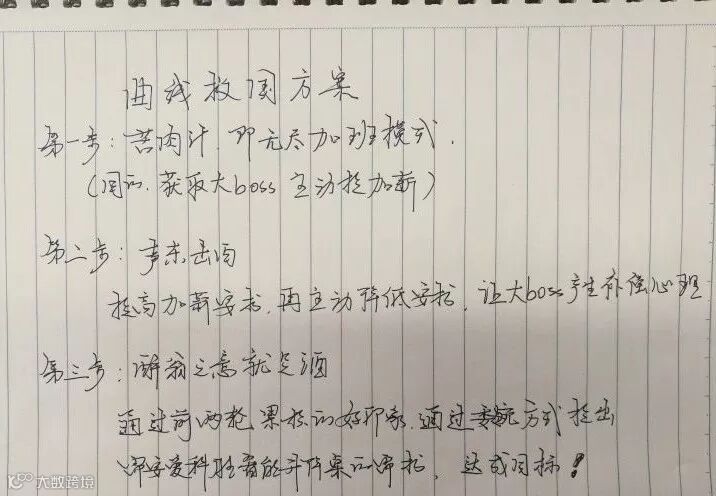 曲线救国方案
第一步：苦肉计，即无尽加班模式．
（目的，获取大boss 主动提加薪）
第二步：声东击西
提高加薪要求，再主动降低要求，让大boss产生补偿心理
第三步：醉翁之意就是酒
通过前两轮累积的好印象，通过委婉方式提出
爱科 智能升降桌的 ，达成目标！
大数跨境